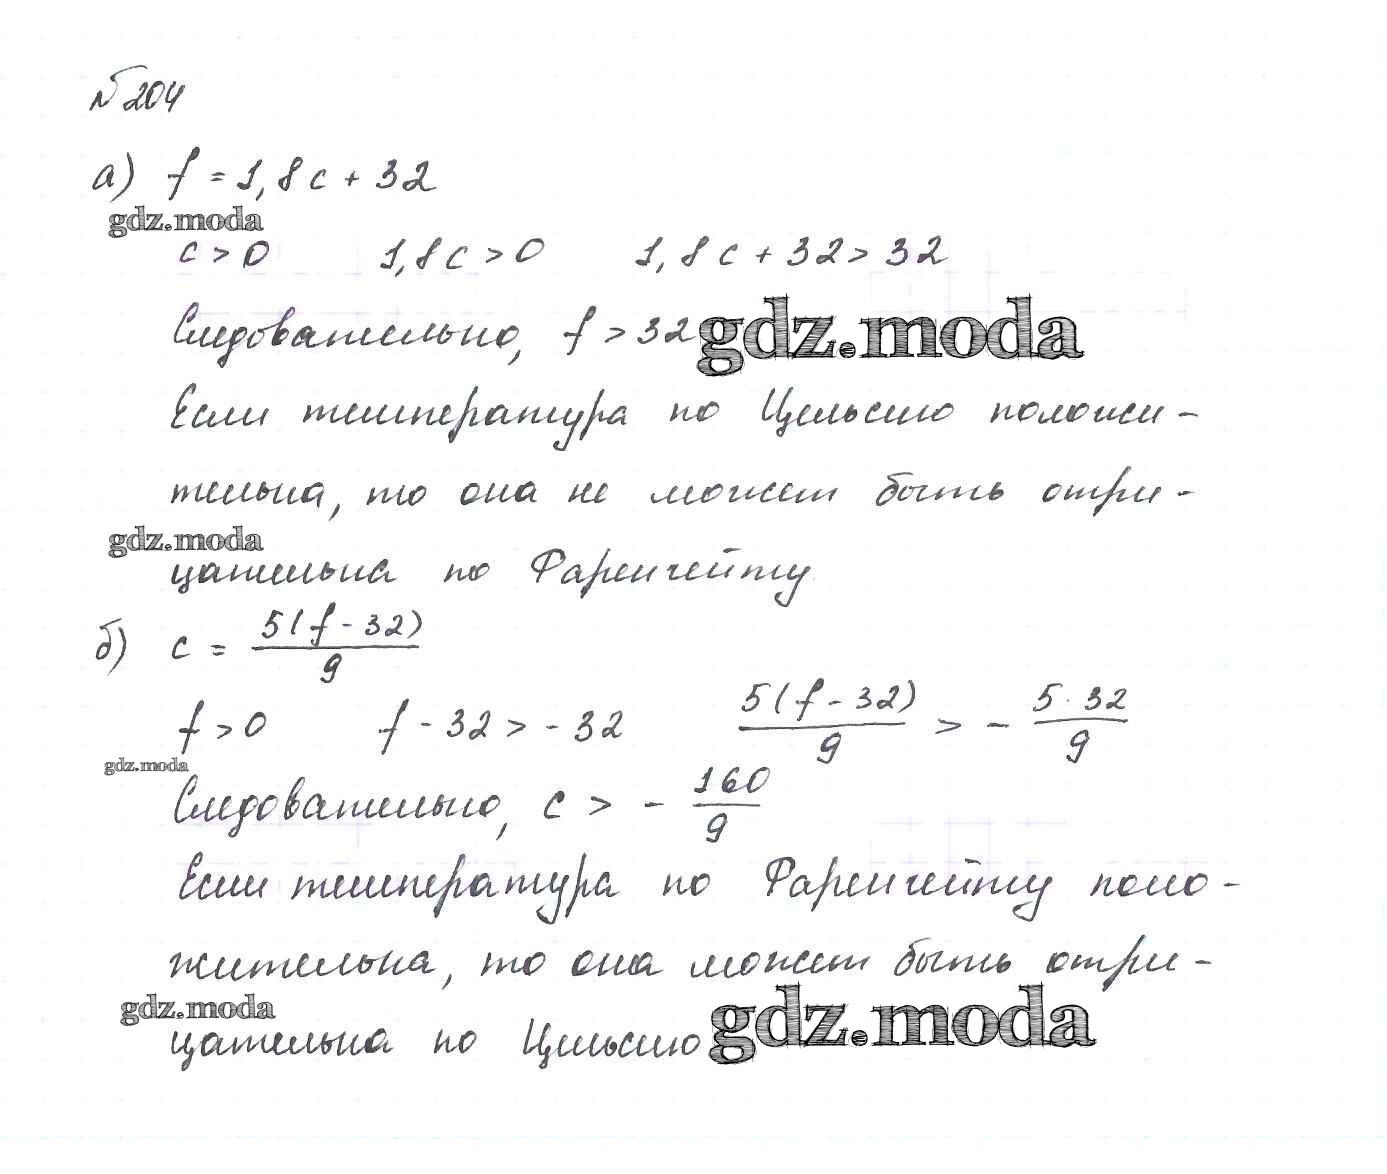 № 204
а) f = 1,8c + 32
gdz.moda
c > 0 1,8c > 0 1,8c + 32 > 32
Следовательно, f > 32 gdz.moda
Если температура по Цельсию положи-
тельна, то она не может быть отри-
gdz.moda
цательна по Фаренгейту
б) c = 5(f - 32)/9
f > 0 f - 32 > - 32 5(f - 32)/9 > - 5·32/9
gdz.moda
Следовательно, c > - 160/9
Если температура по Фаренгейту поло-
жительна, то она может быть отри-
gdz.moda
цательна по Цельсию gdz.moda